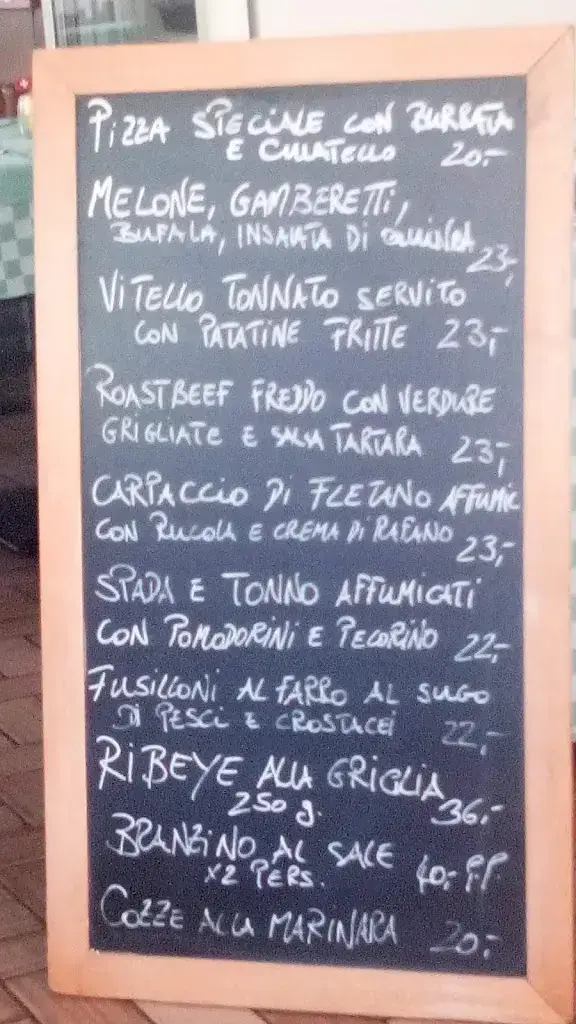 PIZZA SPECIALE CON BURRATA
E CULATELLO 20.-
MELONE, GAMBERETTI,
BUFALA, INSALATA DI QUINOA 23,-
VITELLO TONNATO SERVITO
CON PATATINE FRITTE 23,-
ROASTBEEF FREDDO CON VERDURE
GRIGLIATE E SALSA TARTARA 23,-
CARPACCIO DI FLETANO AFFUMIC
CON RUCOLA E CREMA DI RAFANO 23,-
SPADA E TONNO AFFUMICATI
CON POMODORINI E PECORINO 22,-
FUSILLONI AL FARRO AL SUGO
DI PESCI E CROSTACEI 22,-
RIBEYE ALLA GRIGLIA
250 g. 36.-
BRANZINO AL SALE
x2 PERS. 40,- P.P.
COZZE ALLA MARINARA 20.-